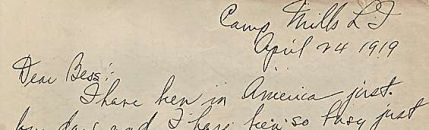 Camp Mills L.I
April 24 1919
Dear Bess:
I have ben in America just
days and I have ben so busy just